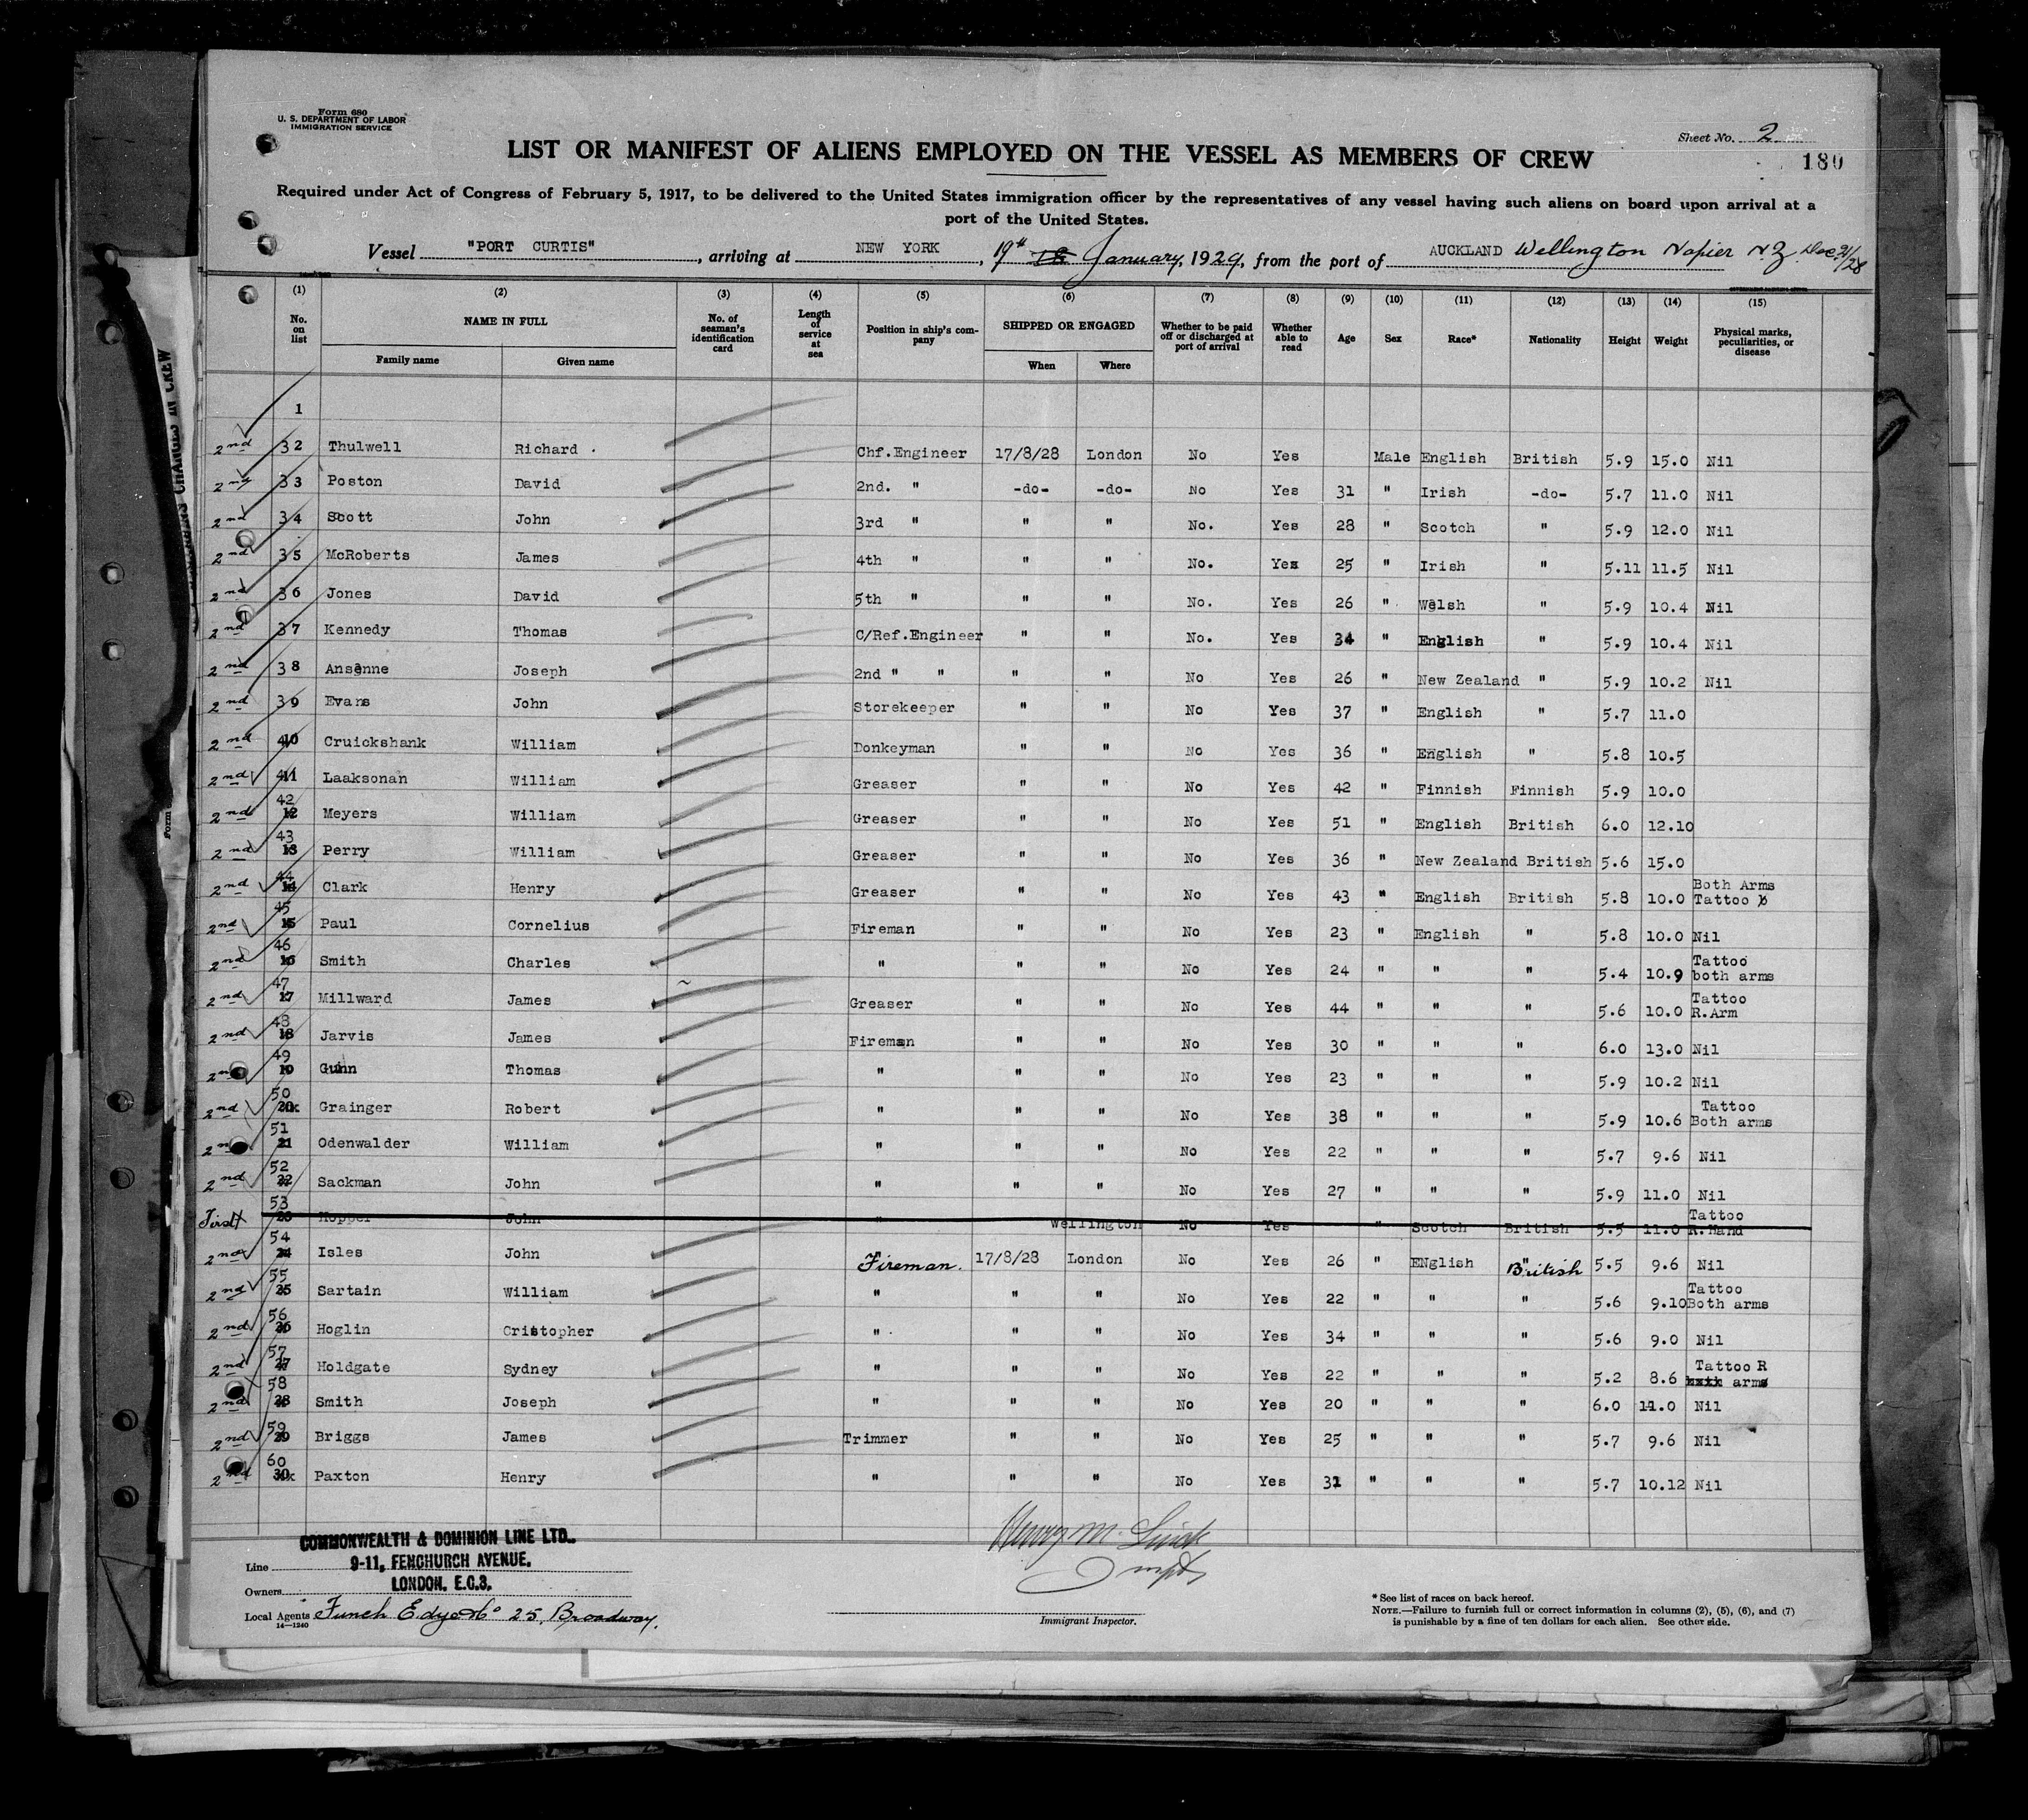 Form 680
U. S. DEPARTMENT OF LABOR
IMMIGRATION SERVICE
Sheet No. 2
180
LIST OR MANIFEST OF ALIENS EMPLOYED ON THE VESSEL AS MEMBERS OF CREW
Required under Act of Congress of February 5, 1917, to be delivered to the United States immigration officer by the representatives of any vessel having such aliens on board upon arrival at a
port of the United States.
Vessel "PORT CURTIS", arriving at NEW YORK, 19th January, 1929, from the port of AUCKLAND Wellington Napier N.Z. Dec 21/28
(1) (2) (3) (4) (5) (6) (7) (8) (9) (10) (11) (12) (13) (14) (15)
No. on list NAME IN FULL Family name Given name No. of seaman's identification card Length of service at sea Position in ship's company SHIPPED OR ENGAGED When Where Whether to be paid off or discharged at port of arrival Whether able to read Age Sex Race* Nationality Height Weight Physical marks, peculiarities, or disease
1
2nd 32 Thulwell Richard Chf.Engineer 17/8/28 London No Yes Male English British 5.9 15.0 Nil
2nd 33 Poston David 2nd. " -do- -do- No Yes 31 " Irish -do- 5.7 11.0 Nil
2nd 34 Scott John 3rd " " " No. Yes 28 " Scotch " 5.9 12.0 Nil
2nd 35 McRoberts James 4th " " " No. Yes 25 " Irish " 5.11 11.5 Nil
2nd 36 Jones David 5th " " " No. Yes 26 " Welsh " 5.9 10.4 Nil
2nd 37 Kennedy Thomas C/Ref.Engineer " " No. Yes 34 " English " 5.9 10.4 Nil
2nd 38 Ansenne Joseph 2nd " " " " No Yes 26 " New Zealand " 5.9 10.2 Nil
2nd 39 Evans John Storekeeper " " No Yes 37 " English " 5.7 11.0
2nd 40 Cruickshank William Donkeyman " " No Yes 36 " English " 5.8 10.5
2nd 41 Laaksonan William Greaser " " No Yes 42 " Finnish Finnish 5.9 10.0
2nd 42 12 Meyers William Greaser " " No Yes 51 " English British 6.0 12.10
2nd 43 13 Perry William Greaser " " No Yes 36 " New Zealand British 5.6 15.0
2nd 44 14 Clark Henry Greaser " " No Yes 43 " English British 5.8 10.0 Both Arms Tattoo
2nd 45 15 Paul Cornelius Fireman " " No Yes 23 " English " 5.8 10.0 Nil
2nd 46 16 Smith Charles " " " No Yes 24 " " " 5.4 10.9 Tattoo both arms
2nd 47 17 Millward James Greaser " " No Yes 44 " " " 5.6 10.0 Tattoo R.Arm
2nd 48 18 Jarvis James Fireman " " No Yes 30 " " " 6.0 13.0 Nil
2nd 49 19 Gunn Thomas " " " No Yes 23 " " " 5.9 10.2 Nil
2nd 50 20 Grainger Robert " " " No Yes 38 " " " 5.9 10.6 Tattoo Both arms
2nd 51 21 Odenwalder William " " " No Yes 22 " " " 5.7 9.6 Nil
2nd 52 22 Sackman John " " " No Yes 27 " " " 5.9 11.0 Nil
First 53 23 Hopper John " Wellington No Yes " Scotch British 5.5 11.0 Tattoo R.Hand
2nd 54 24 Isles John Fireman. 17/8/28 London No Yes 26 " ENglish British 5.5 9.6 Nil
2nd 55 25 Sartain William " " " No Yes 22 " " " 5.6 9.10 Tattoo Both arms
2nd 56 26 Hoglin Cristopher " " " No Yes 34 " " " 5.6 9.0 Nil
2nd 57 27 Holdgate Sydney " " " No Yes 22 " " " 5.2 8.6 Tattoo R arm
2nd 58 28 Smith Joseph " " " No Yes 20 " " " 6.0 11.0 Nil
2nd 59 29 Briggs James Trimmer " " No Yes 25 " " " 5.7 9.6 Nil
2nd 60 30 Paxton Henry " " " No Yes 31 " " " 5.7 10.12 Nil
Line COMMONWEALTH & DOMINION LINE LTD.
9-11, FENCHURCH AVENUE,
Owners LONDON. E.C.3.
Local Agents Funch Edye & Co 25, Broadway.
14—1240
Henry M.
Immigrant Inspector.
* See list of races on back hereof.
NOTE.—Failure to furnish full or correct information in columns (2), (5), (6), and (7)
is punishable by a fine of ten dollars for each alien. See other side.